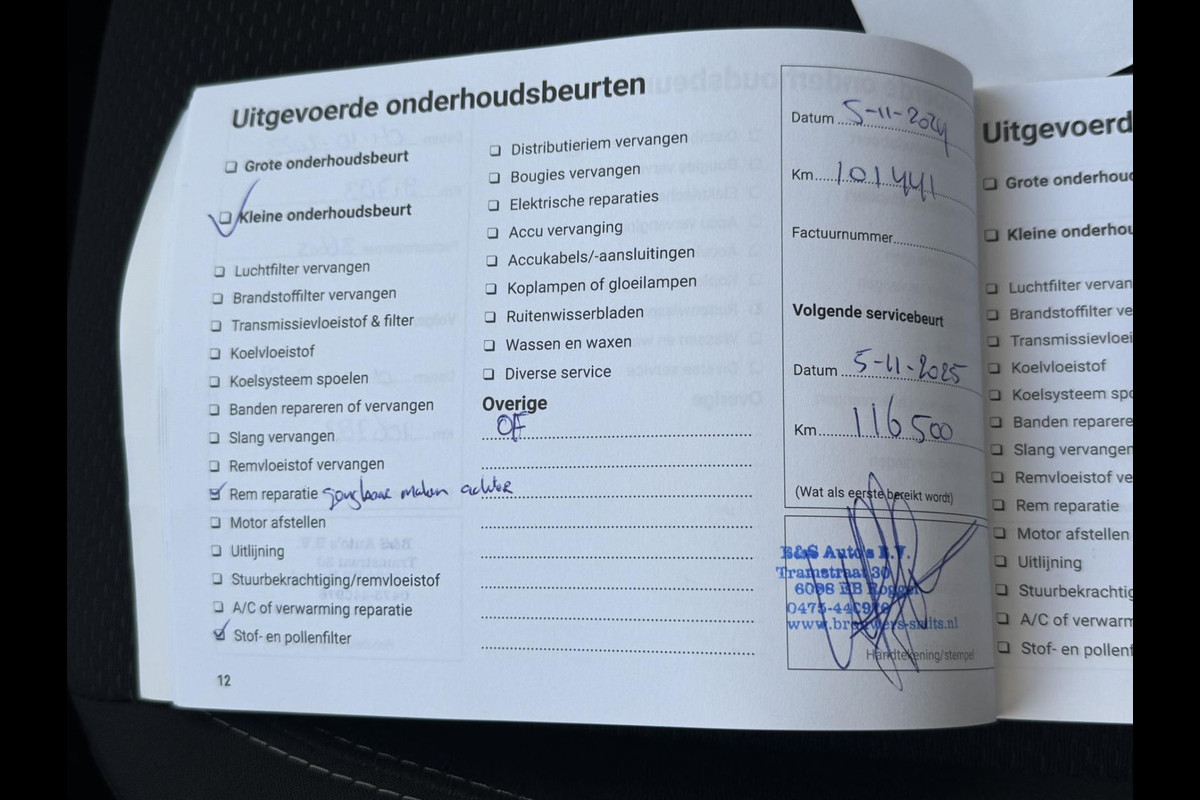 Uitgevoerde onderhoudsbeurten
Grote onderhoudsbeurt
Kleine onderhoudsbeurt
Luchtfilter vervangen
Brandstoffilter vervangen
Transmissievloeistof & filter
Koelvloeistof
Koelsysteem spoelen
Banden repareren of vervangen
Slang vervangen
Remvloeistof vervangen
Rem reparatie gangbaar maken achter
Motor afstellen
Uitlijning
Stuurbekrachtiging/remvloeistof
A/C of verwarming reparatie
Stof- en pollenfilter
12
Distributieriem vervangen
Bougies vervangen
Elektrische reparaties
Accu vervanging
Accukabels/-aansluitingen
Koplampen of gloeilampen
Ruitenwisserbladen
Wassen en waxen
Diverse service
Overige
OF
Datum 5-11-2024
Km 101441
Factuurnummer
Volgende servicebeurt
Datum 5-11-2025
Km 116500
(Wat als eerste bereikt wordt)
B&S Auto's B.V.
Tramstraat 30
6088 EB Roggel
0475-44
www.brouwers-smits.nl
Handtekening/stempel
Uitgevoerd
Grote onderhou
Kleine onderhou
Luchtfilter vervan
Brandstoffilter ve
Transmissievloei
Koelvloeistof
Koelsysteem spo
Banden reparere
Slang vervangen
Remvloeistof ve
Rem reparatie
Motor afstellen
Uitlijning
Stuurbekrachtig
A/C of verwarm
Stof- en pollenf